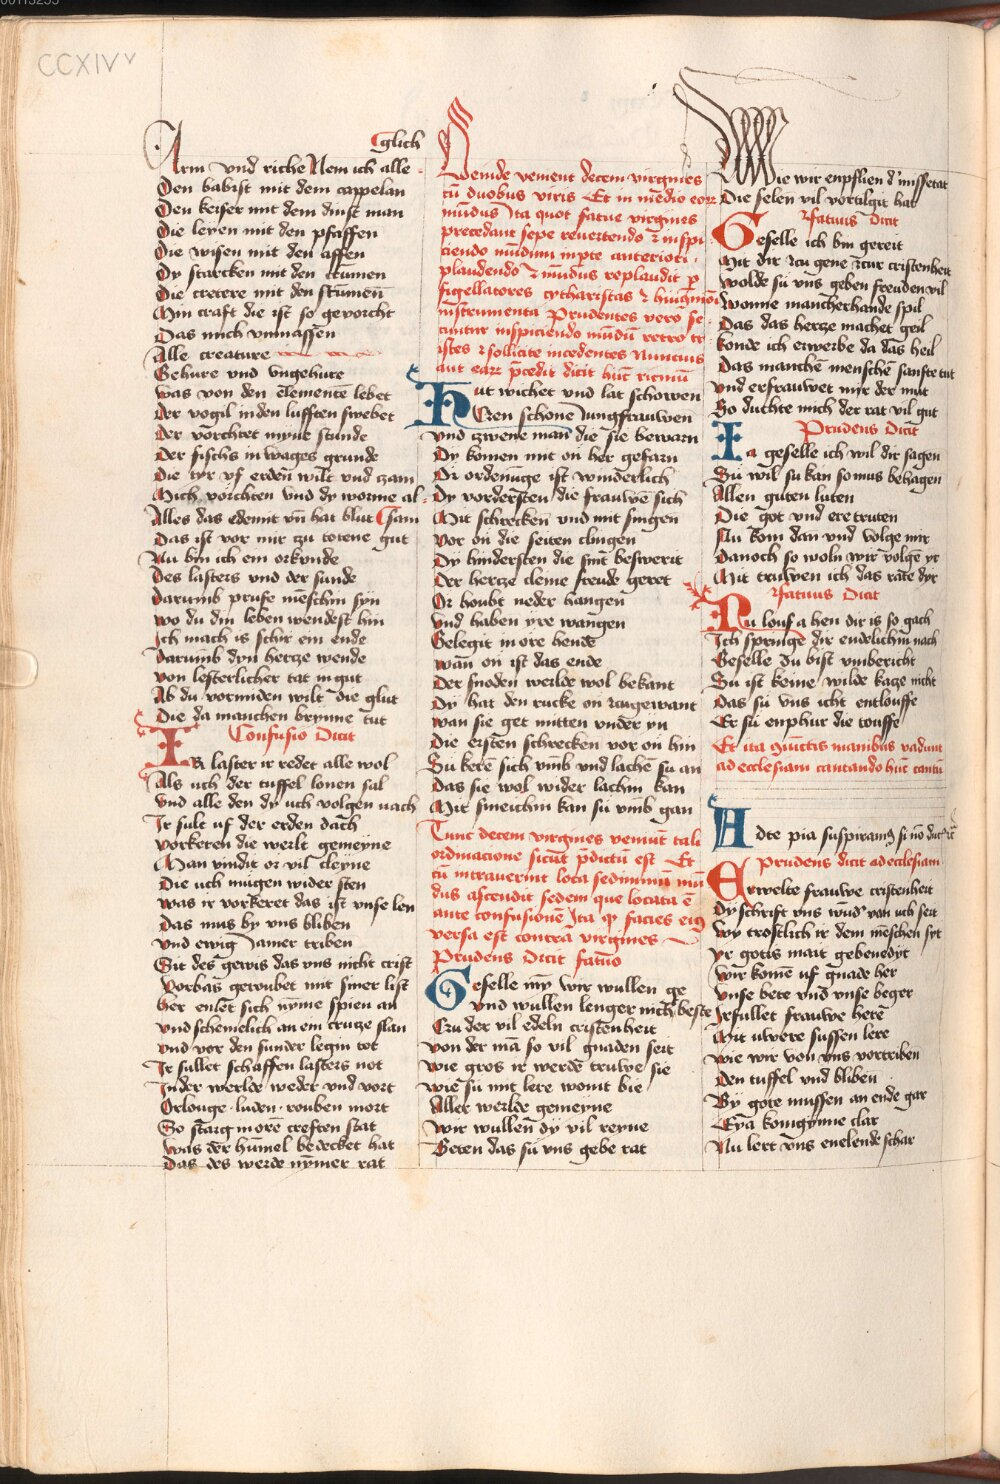 CCXIV v
glich
Arm vnd riche Nem ich alle
Den babist mit dem cappelan
Den keiser mit dem dinst man
Die leyen mit den pfaffen
Die wisen mit den affen
Dy starcken mit den krumen
Die cretere mit den stūmen
Min craft die ist so gevorcht
Das mich vnmassen
Alle creature
Gehure vnd vngehure
was von den elemente lebet
Der vogil in den lufften swebet
Der vorchtet myne stunde
Der fischs in wages grunde
Die tyr vf erden wilt vnd czam
Mich vorchten vnd dy worme al
Alles das edemit vn hat blut sam
Das ist vor mir zu torene gut
Nu bin ich ein orkunde
Des lasters vnd der sunde
darumb prufe menschin syn
wo du din leben wendest hin
Ich mach is schir ein ende
darumb dyn hercze wende
von lesterlicher tat in gut
Ab du vormiden wilt die glut
Die da manchen brynne tut
Confusio Dicit
IR laster ir redet alle wol
Als uch der tuffel lonen sal
vnd alle den dy uch volgen nach
Ir sult uf der erden dach
vorkeren die werlt gemeyne
Man vindit or vil cleyne
Die uch mugen wider sten
was ir vorkeret das ist vnse len
das mus by vns bliben
vnd ewig Jamer triben
Sit des gewis das vns nicht crist
vorbas geroubet mit siner list
Her enlet sich nyme spien an
vnd schemelich an ein crucze slan
vnd vor den sunder legin tot
Ir sullet schaffen lasters not
In der werlde weder vnd vort
Orlouge luden rouben mort
So starcg more creften stat
was der hymel bedecket hat
das des werde nymer rat
Deinde veniunt decem virgines
cū duobus viris Et in medio eorz
mūdus Ita quot fatue virgines
precedant sepe reuertendo z inspi
ciendo mūdum in pte anteriori
plaudendo z mūdus replaudit p
figellatores cytharistas z huiusmōi
instrumenta Prudentes vero se
cuntur inspiciendo mūdū retro tr
istes z sollicite incedentes Nuncius
aut earz precedit dicit hūc ricmū
Hut wichet vnd lat schowen
Czen schone Jungfrauwen
vnd zwene man die sie bewarn
Dy komen mit on her gefarn
Or ordenūge ist wunderlich
Dy vordersten die frauwē sich
Mit schrecken vnd mit singen
vor on die seiten clingen
Dy hindersten die sint beswerit
Der hercze cleine freude geret
Or houbt neder hangen
vnd haben yre wangen
Gelegit in ore hende
wan on ist das ende
Der snoden werlde wol bekant
Dy hat den rucke on zugewant
wan sie get mitten vnder yn
Die ersten schrecken vor on hin
Su kere sich vmb vnd lachē su an
Das sie wol wider lachin kan
Mit smeichin kan su vmb gan
Tunc decem virgines veniūt tali
ordinacione sicut pdictū est Et
cū intraverint loca sedimūm mū
dus ascendit sedem que locata ē
ante confusionē Ita qp facies eig
versa est contra virgines
Prudens Dicit fatuo
Geselle my wir wullen ge
vnd wullen lenger nicht beste
Czu der vil edeln cristenheit
von der mā so vil gnaden seit
wie gros ir werde truwe sie
wie su mit lere wont bie
Aller werlde gemeyne
wir wullen dy vil reyne
Beten das su vns gebe rat
Wie wir enpflien d' missetat
Die selen vil vortilgit hat
Fatuus Dicit
Geselle ich bin gereit
Mit dir zcu gene zcur cristenheit
wolde su vns geben freuden vil
wonne mancherhande spil
Das das hercze machet geil
konde ich erwerbe da das heil
Das manche menschē sanfte tut
vnd erfrauwet mir der mut
So duchte mich der rat vil gut
Prudens Dicit
Ia geselle ich wil dir sagen
Su wil su kan so mus behagen
Allen guten luten
Die got vnd ere truten
Nu kom dan vnd volge mir
Danoch so woln wir volge yr
Mit truwen ich das rate dyr
Fatuus Dicit
Nu louf a hen dir is so gach
Ich springe dir endelichin nach
Geselle du bist vmbericht
Su ist keine wilde kacze nicht
Das su vns icht entlouffe
Er su enphur die touffe
Et ita iūctis manibus vadunt
ad ecclesiam cantando hūc cantū
Ad te pia suspiramg si nō
Prudens dicit ad ecclesiam
Erwelte frauwe cristenheit
Dy schrift vns wūd' von uch seit
wy trostlich ir dem menschen syt
yr gotis mait gebenedyt
wir kome uf gnade her
vnse bete vnd vnse beger
Irfullet frauwe here
Mit uwere sussen lere
wie wir von vns vortriben
Den tuffel vnd bliben
By gote mussen an ende gar
Eya koniginne clar
Nu lert vns enelende schar